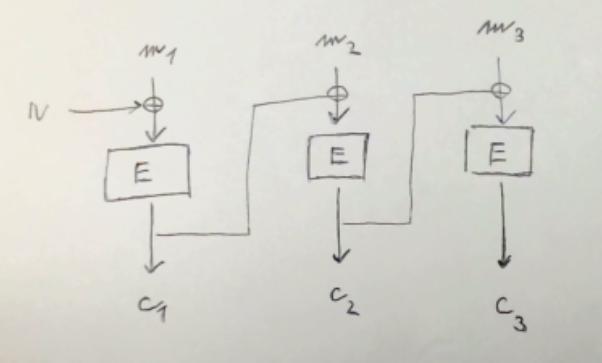 m1 m2 m3
N
E E E
C1 C2 C3